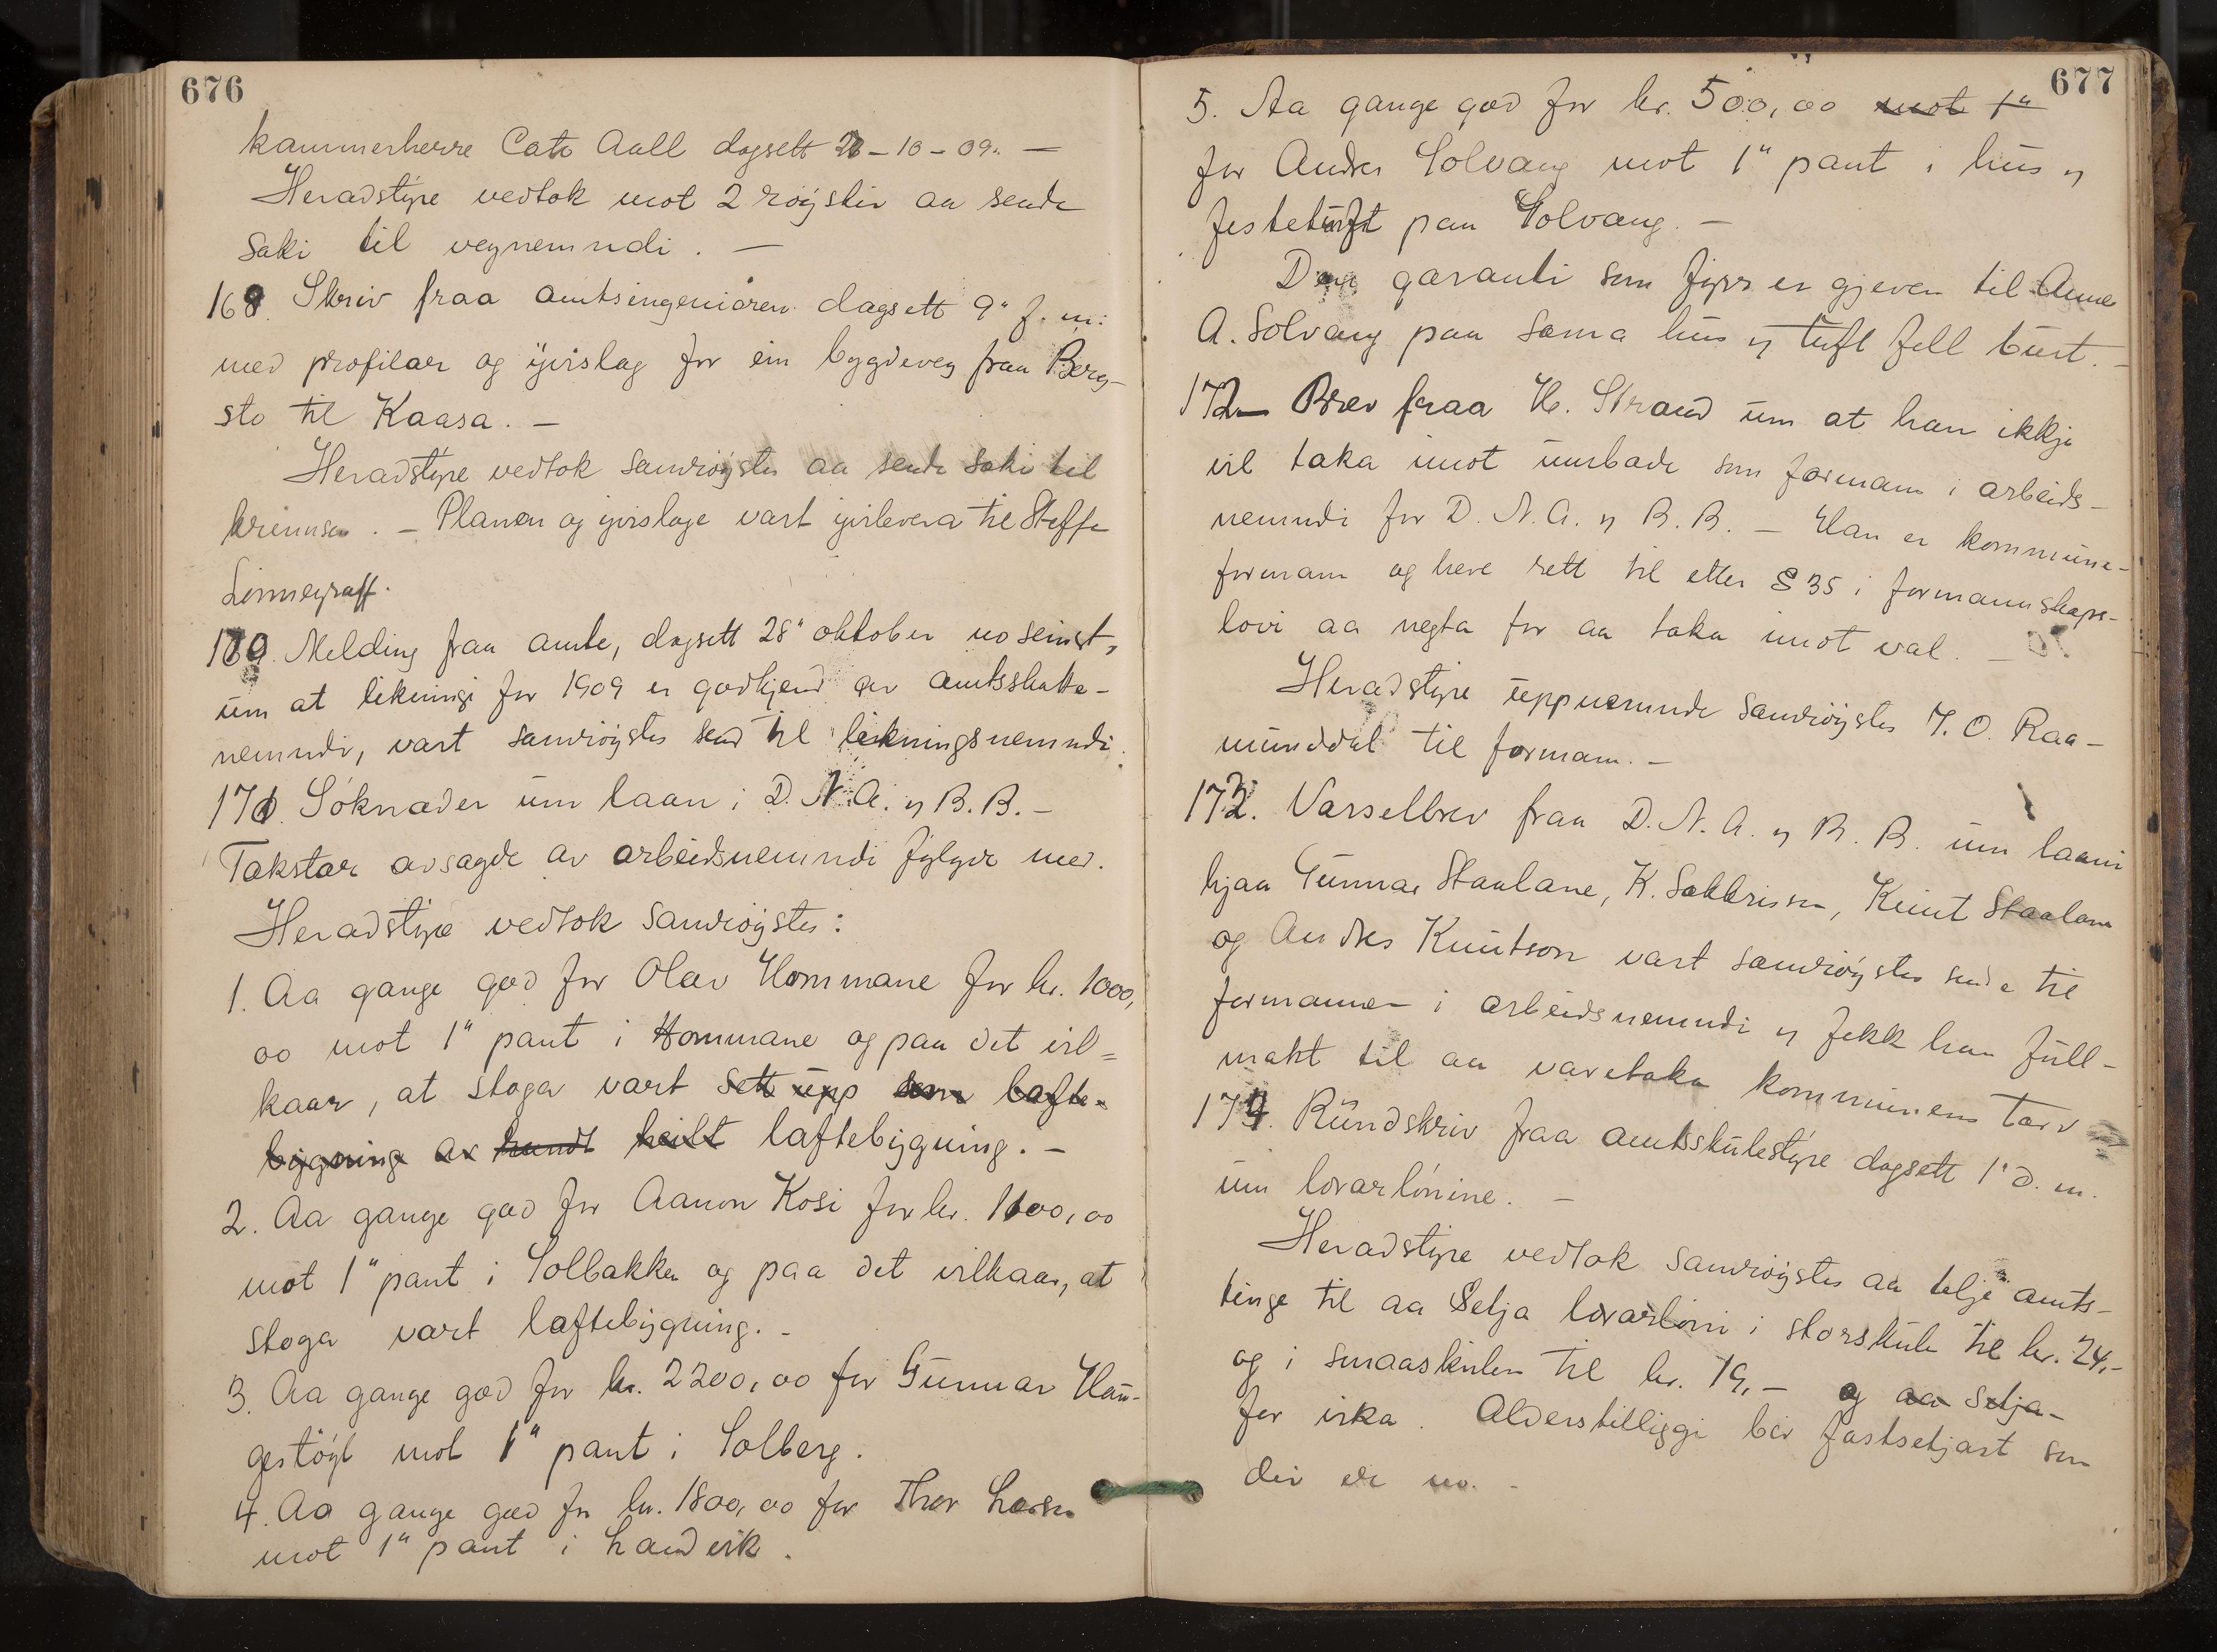 676
kammerherre Cato Aall dagsett 26-10-09. —
Heradstyre vedtok mot 2 röyster aa sende
saki til vegnemndi. —
169. Skriv fraa amtsingeniören dagsett 9" f. m.
med profilar og yvislag for ein bygdeveg fraa Berg-
sto til Kaasa. —
Heradstyre vedtok samröystes aa sende saki til
krinnsen. — Planen og yvislage vart yvilevera til Steffe
Linnegraff.
170. Melding fraa amte, dagsett 28" oktober no seinst,
um at likningi for 1909 er godkjend av amtsskatte-
nemndi, vart samröystes send til likningsnemndi.
171. Söknader um laan i D. N. A. og B. B. —
Takstar avsagde av arbeidsnemndi fylgde med.
Heradstyre vedtok samröystes:
1. Aa gange god for Olav Hommane for kr. 1000,
00 mot 1" pant i Hommane og paa det vil=
kaar, at stoga vart sett upp som lafte-
bygning av heilt laftebygning. —
2. Aa gange god for Aanon Kosi for kr. 1100,00
mot 1" pant i Solbakken og paa det vilkaar, at
stoga vart laftebygning. -
3. Aa gange god for kr. 2200,00 for Gunnar Hau-
gestöyl mot 1" pant i Solberg.
4. Aa gange god for kr. 1800,00 for Thor Larsen
mot 1" pant i Landvik.
677
5. Aa gange god for kr. 500,00 mot 1"
for Andres Solvang mot 1" pant i hus og
festetuft paa Solvang. —
Den garanti som fyrr er gjeven til Anne
A. Solvang paa sama hus og tuft fell burt. —
172 — Brev fraa H. Strand um at han ikkje
vil taka imot umbode som formann i arbeids-
nemndi for D. N. A. og B. B. — Han er kommune-
formann og heve rett til etter § 35 i formannskaps-
lovi aa negta for aa taka imot val. —
Heradstyre uppnemnde samröystes T. O. Raa-
munddal til formann. —
173. Varselbrev fraa D. N. A. og B. B. um laani
hjaa Gunnar Staalane, K. Sakkrissen, Knut Staalane
og Andres Knutson vart samröystes sende til
formannen i arbeidsnemndi og fekk han full-
makt til aa varetaka kommunens tarv
174. Rundskriv fraa amtsskulestyre dagsett 1" d. m.
um lærarlönine. —
Heradstyre vedtok samröystes aa telja amts-
tinge til aa setja lærarlöni i storskulen til kr. 24,-
og i smaaskulen til kr. 19,— og aa setja-
for vika. Alderstilliggi bör fastsetjast som
dei er no. -